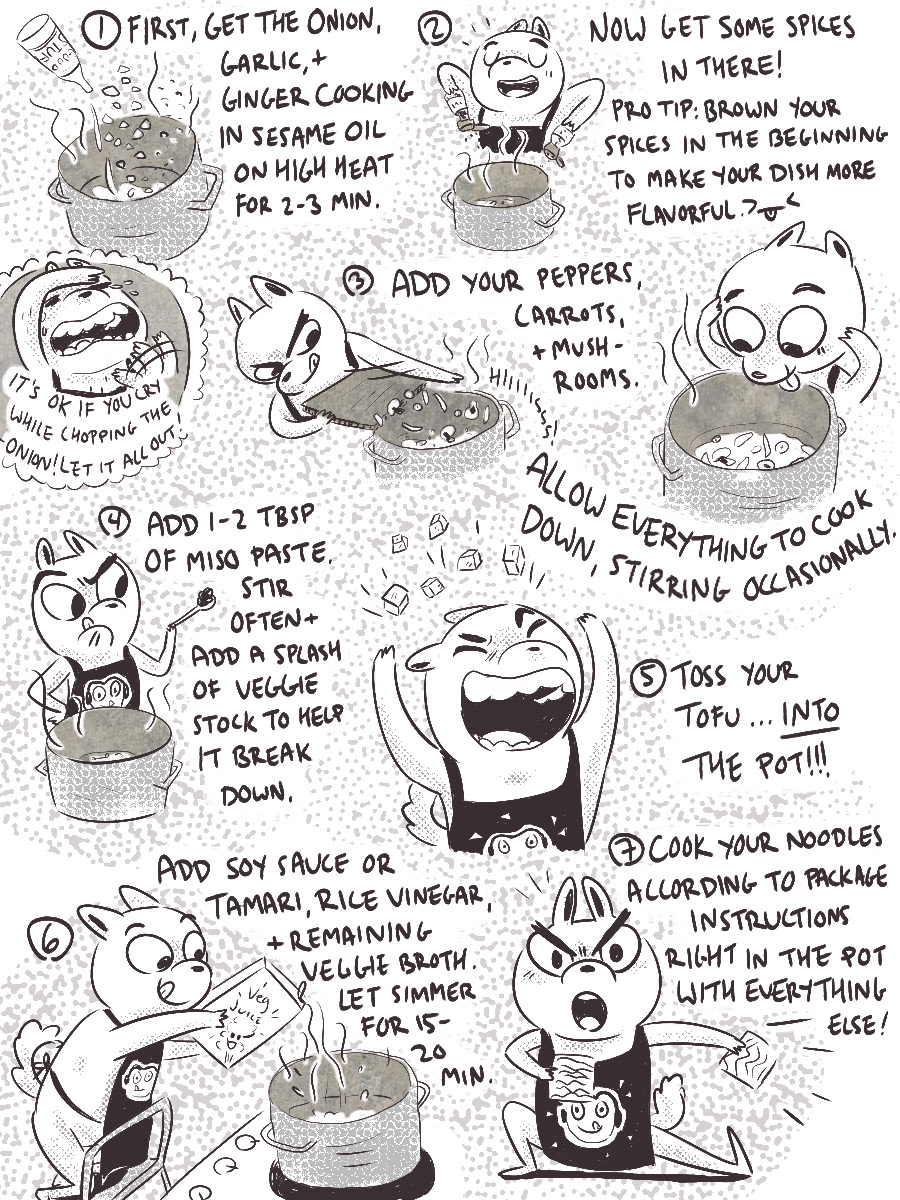 ① FIRST, GET THE ONION,
GARLIC, +
GINGER COOKING
IN SESAME OIL
ON HIGH HEAT
FOR 2-3 MIN.
② NOW GET SOME SPICES
IN THERE!
PRO TIP: BROWN YOUR
SPICES IN THE BEGINNING
TO MAKE YOUR DISH MORE
FLAVORFUL.
IT'S OK IF YOU CRY
WHILE CHOPPING THE
ONION! LET IT ALL OUT.
③ ADD YOUR PEPPERS,
CARROTS,
+ MUSH-
ROOMS.
HIIIIISSSS!
ALLOW EVERYTHING TO COOK
DOWN, STIRRING OCCASIONALLY.
④ ADD 1-2 TBSP
OF MISO PASTE.
STIR
OFTEN +
ADD A SPLASH
OF VEGGIE
STOCK TO HELP
IT BREAK
DOWN.
⑤ TOSS YOUR
TOFU ... INTO
THE POT!!!
⑥ ADD SOY SAUCE OR
TAMARI, RICE VINEGAR,
+ REMAINING
VEGGIE BROTH.
LET SIMMER
FOR 15-
20
MIN.
Veg
JUICE
⑦ COOK YOUR NOODLES
ACCORDING TO PACKAGE
INSTRUCTIONS
RIGHT IN THE POT
WITH EVERYTHING
ELSE!